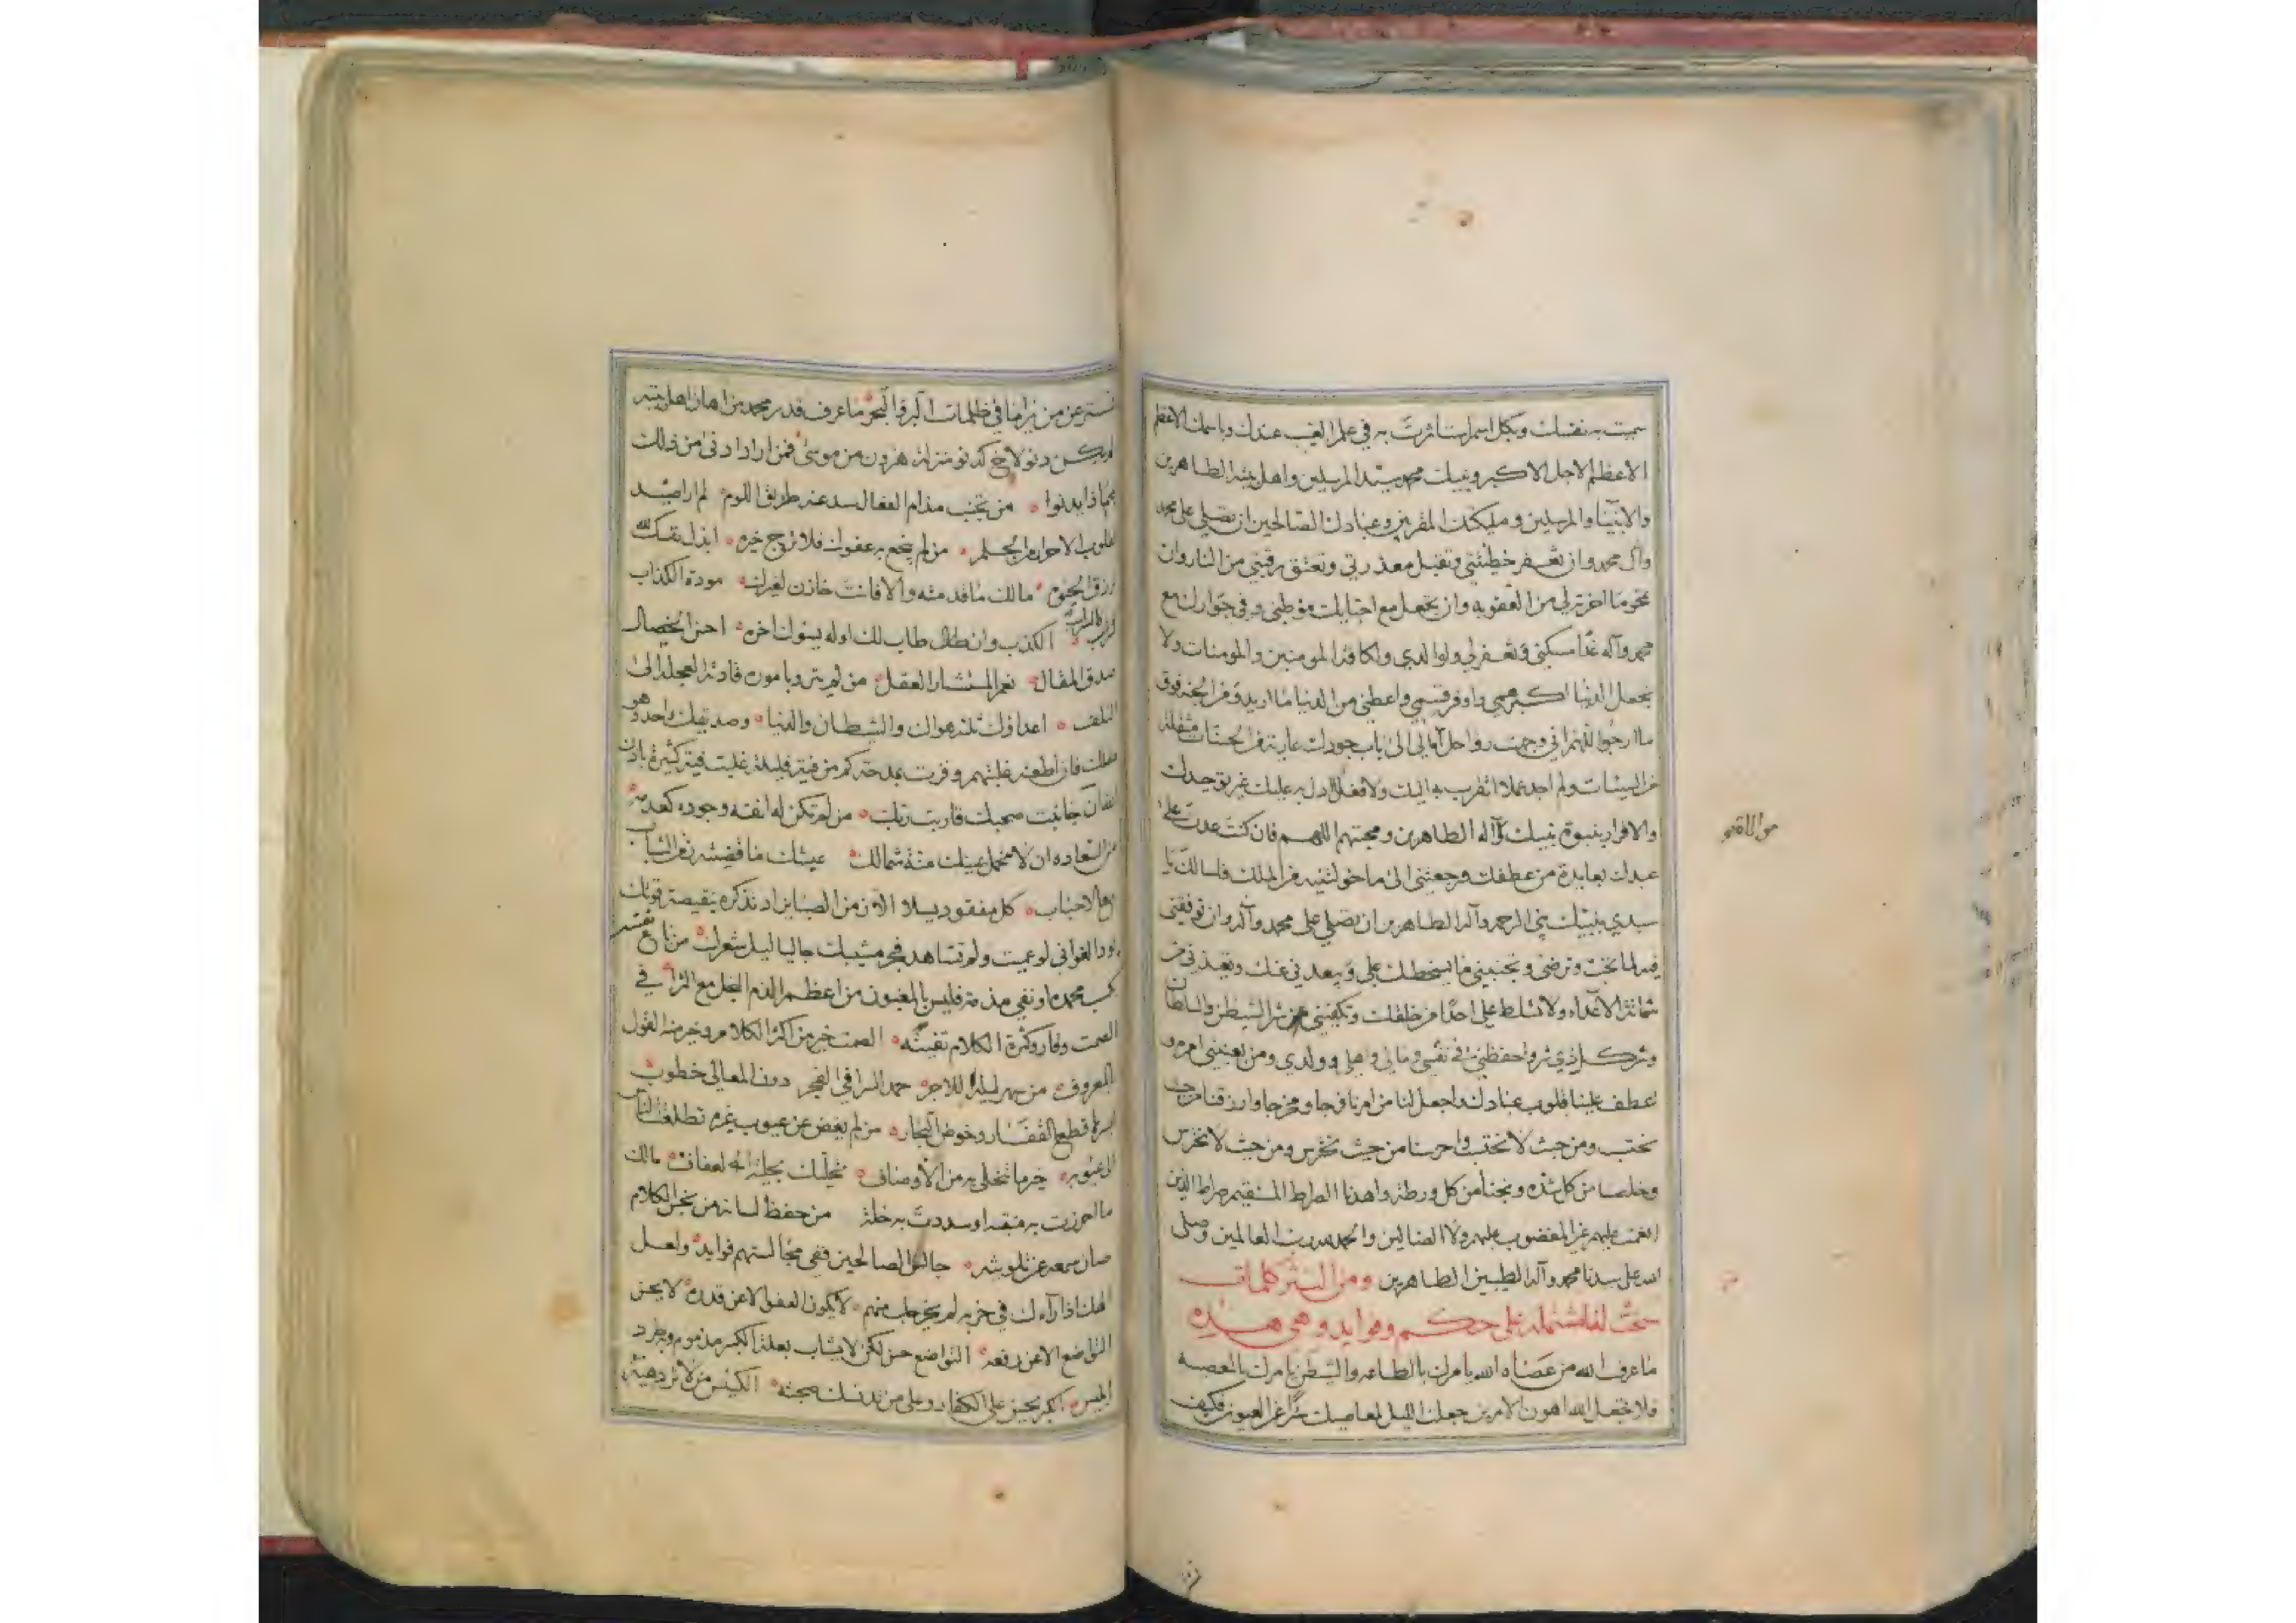 سميت به نفسك وبكل اسم استاثرت به في علم الغيب عندك وباسمك الاعظم
الاعظم الاجل الاكبر وبنبيك محمد سيد المرسلين واهل بيته الطاهرين
والانبيا والمرسلين ومليكتك المقربين وعبادك الصالحين ان تصلي على محمد
وآل محمد وان تغفر خطيئتي وتقبل معذرتي وتعتق رقبتي من النار وان
تمحو ما اخرته لي من العقوبه وان تجعل مع احبايك موطني وفي جوارك مع
محمد وآله غدا مسكني وتغفر لي ولوالدي ولكافة المومنين والمومنات ولا
تجعل الدنيا اكبر همي واوفر قسمي واعطني من الدنيا ما اريد ومن الجنه فوق
ما ارجوا اللهم اني وجهت رواحل آمالي الى باب جودك عارية من الحسنات مثقلة
من السيئات ولم اجد عملا اتقرب به اليك ولا فعلا ادل به عليك غير توحيدك
والاقرار بنبوة نبيك وآله الطاهرين ومحبتهم اللهم فان كنت عدت على
عبدك بعايدة من عطفك ورجعتني الى ما خولتنيه من الملك فاسالك يا
سيدي بنبيك نبي الرحمه وآله الطاهرين ان تصلي على محمد وآله وان توفقني
فيه لما تحب وترضى وتجنبني ما يسخطك علي ويبعدني عنك وتعيذني من
شماتة الاعداء ولا تسلط علي احدا من خلقك وتكفيني شر الشيطن والسلطان
وشر كل ذي شر واحفظني في نفسي ومالي واهلي وولدي ومن يعنيني امره و
اعطف علينا قلوب عبادك واجعل لنا من امرنا فرجا ومخرجا وارزقنا من حيث
نحتسب ومن حيث لا نحتسب واحرسنا من حيث نحترس ومن حيث لا نحترس
وخلصنا من كل شده ونجنا من كل ورطة واهدنا الصراط المستقيم صراط الذين
انعمت عليهم غير المغضوب عليهم ولا الضالين والحمد لله رب العالمين وصلى
الله على سيدنا محمد وآله الطيبين الطاهرين ومن النثر كلمات
مشتملة على حكم وفوايد وهي هذه
ما عرف الله من عصاه الله يامرك بالطاعه والشيطن يامرك بالمعصيه
فلا تجعل الله اهون الامرين جعلت الليل لمعاصيك سترا عن العيون فكيف
تستتر عن من يراها في ظلمات البر والبحر ما عرف قدر محمد من اهان اهل بيته
كدنو منزلة هرون من موسى فمن اراد ادنى من ذلك
فماذا يدنوا من تجنب مذام الفعال سد عنه طريق اللوم لم ار اصيد
لقلوب الاحرار من الحلم من لم ينجع به عفوك فلا ترج خيره ابذل نفسك لله
مالك ما قدمته والا فانت خازن لغيرك مودة الكذاب
الكذب وان طال طاب لك اوله يسوك اخره احسن الخصال
صدق المقال نعم المستشار العقل من لم يترو بامره قادته العجلة الى
التلف اعداؤك ثلثة هواك والشيطان والدنيا وصديقك واحد وهو
عقلك فان اطعته غلبتهم وفزت بمدحة كم من فية قليلة غلبت فية كثيرة باذن
الله ان جانبت صحبك قاربت ربك من لم تكن له انفه وجوده كعدمه
من السعاده ان لا تحمل عينك منة شمالك عيشك ما قضيته زمن الشباب
مع الاحباب كل مفقود يسلا
الغواني لو عميت ولم تشاهد فجر مشيبك جاليا ليل شعرك
كسب محمدة او نفي مذمة فليس بالمغبون من اعظم الذم البخل مع الثراء في
الصمت وقار وكثرة الكلام الصمت خير من اكثر الكلام وخير منه القول
المعروف من سهر ليله للاجر حمد السرا في الفجر دون المعالي خطوب
قطع القفار وخوض البحار من لم يغض عن عيوب غيره تطلعت الناس
الى عيوبه خير ما تتحلى به من الاوصاف تحليك بحلية العفاف مالك
ما احرزت به منقبه او سددت به خلة من حفظ لسانه من بخس الكلام
صان سمعه عن جالس الصالحين ففي مجالستهم فوايد ولعل
الله اذا رآءك في حزبه لم يخرجك منهم لا يكون العفو الا عن قدرة لا يحسن
التواضع الا عن رفعه التواضع حسن لكن لا يشاب بعلة الكبر مذموم
ابليس الكبر يحسن على الكفار وعلى من تدنسك صحبته الكيس من لا تزدهيه